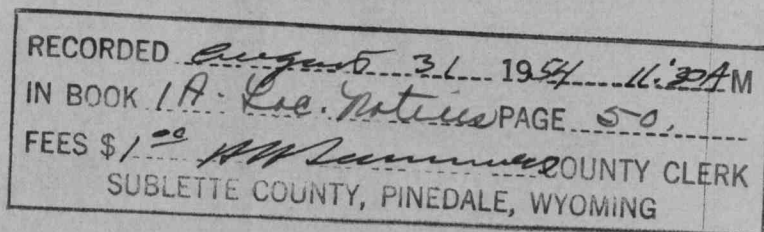 RECORDED August 31 1954 11:30 AM
IN BOOK 1A. Loc. Notices PAGE 50.
FEES $1.00 COUNTY CLERK
SUBLETTE COUNTY, PINEDALE, WYOMING